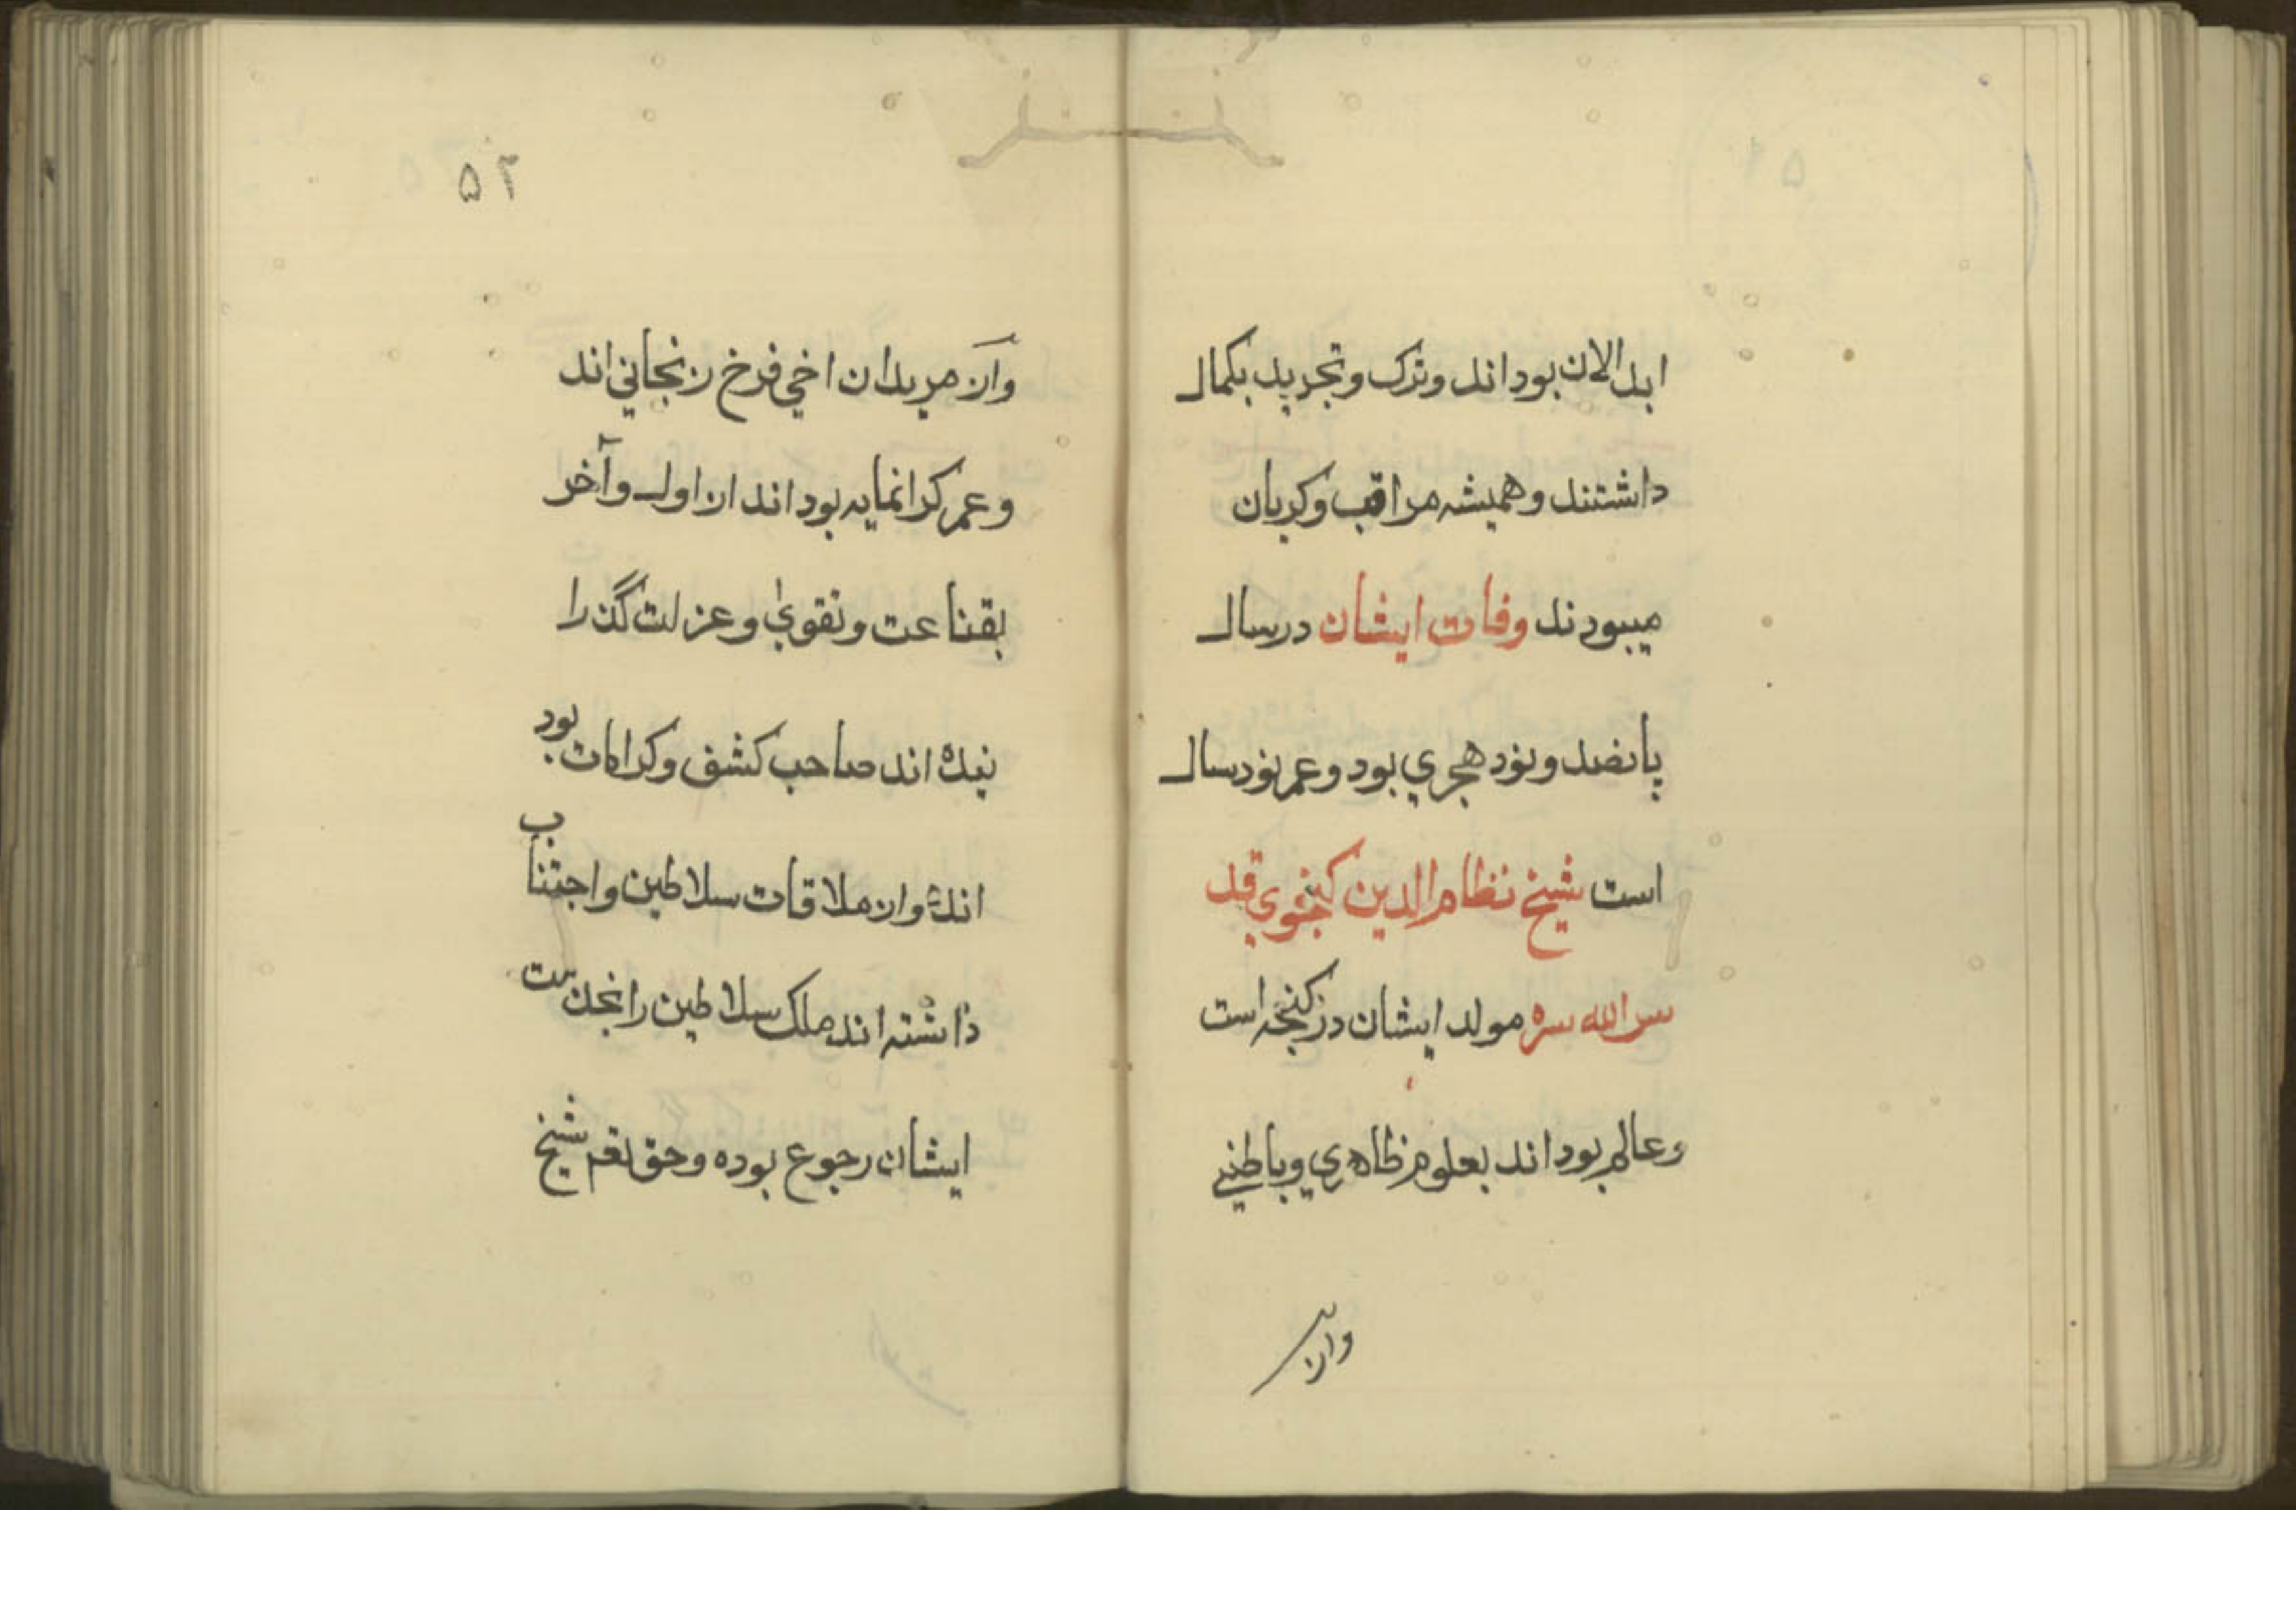 ابدالان بود اند وترک وتجرید بکمال
داشتند و همیشه مراقب و کریان
میبودند وفات ایشان درسال
پانصد ونود هجري بود وعمر نودسال
است شیخ نظام الدین کنجوي قد
سر الله سره مولد ایشان در کنجه است
وعالم بود اند بعلوم ظاهري وباطني
واز
۵۲
واز مریدان اخي فرخ زنجاني اند
وعمر کرانمایه بود اند از اول وآخر
بقناعت وتقوي وعزلت گذرا
نیده اند صاحب کشف وکرامات بود
اند واز ملاقات سلاطین واجتناب
داشته اند ملک سلاطین را بخدمت
ایشان رجوع بوده وحق نعم شیخ